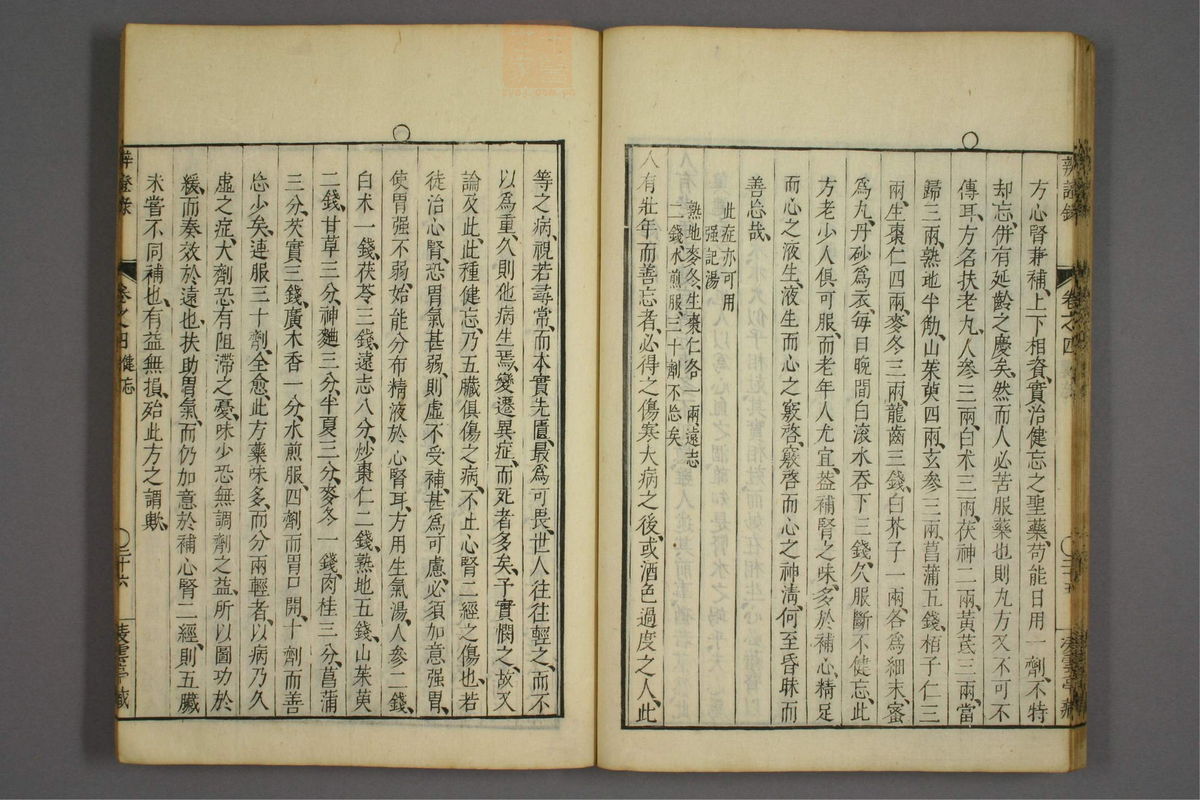 方心腎兼補上下相資實治健忘之聖藥苟能日用一劑不特
却忘併有延齡之慶矣然而人必苦服藥也則丸方又不可不
傳耳方名扶老丸人參三兩白朮三兩茯神二兩黃芪三兩當
歸三兩熟地半觔山茱萸四兩玄參三兩菖蒲五錢栢子仁三
兩生棗仁四兩麥冬三兩龍齒三錢白芥子一兩各爲細末蜜
爲丸丹砂爲衣每日晚間白滾水吞下三錢久服斷不健忘此
方老少人俱可服而老年人尤宜葢補腎之味多於補心精足
而心之液生液生而心之竅啓竅啓而心之神淸何至昏昧而
善忘哉
此症亦可用
强記湯
熟地麥冬生棗仁各一兩遠志
二錢水煎服三十劑不忘矣
人有壯年而善忘者必得之傷寒大病之後或酒色過度之人此
辨證錄
卷之四
等之病視若尋常而本實先匱最爲可畏世人往往輕之而不
以爲重久則他病生焉變遷異症而死者多矣予實憫之故又
論及此此種健忘乃五臟俱傷之病不止心腎二經之傷也若
徒治心腎恐胃氣甚弱則虛不受補甚爲可慮必須加意强胃
使胃强不弱始能分布精液於心腎耳方用生氣湯人參二錢
白朮一錢茯苓三錢遠志八分炒棗仁二錢熟地五錢山茱萸
二錢甘草三分神麯三分半夏三分麥冬一錢肉桂三分菖蒲
三分芡實三錢廣木香一分水煎服四劑而胃口開十劑而善
忘少矣連服三十劑全愈此方藥味多而分兩輕者以病乃久
虛之症大劑恐有阻滯之憂味少恐無調劑之益所以圖功於
緩而奏效於遠也扶助胃氣而仍加意於補心腎二經則五臟
未嘗不同補也有益無損殆此方之謂歟